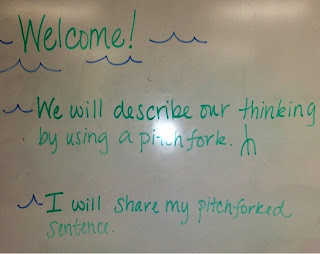 Welcome!
We will describe our thinking
by using a pitchfork.
I will share my pitchforked
sentence.